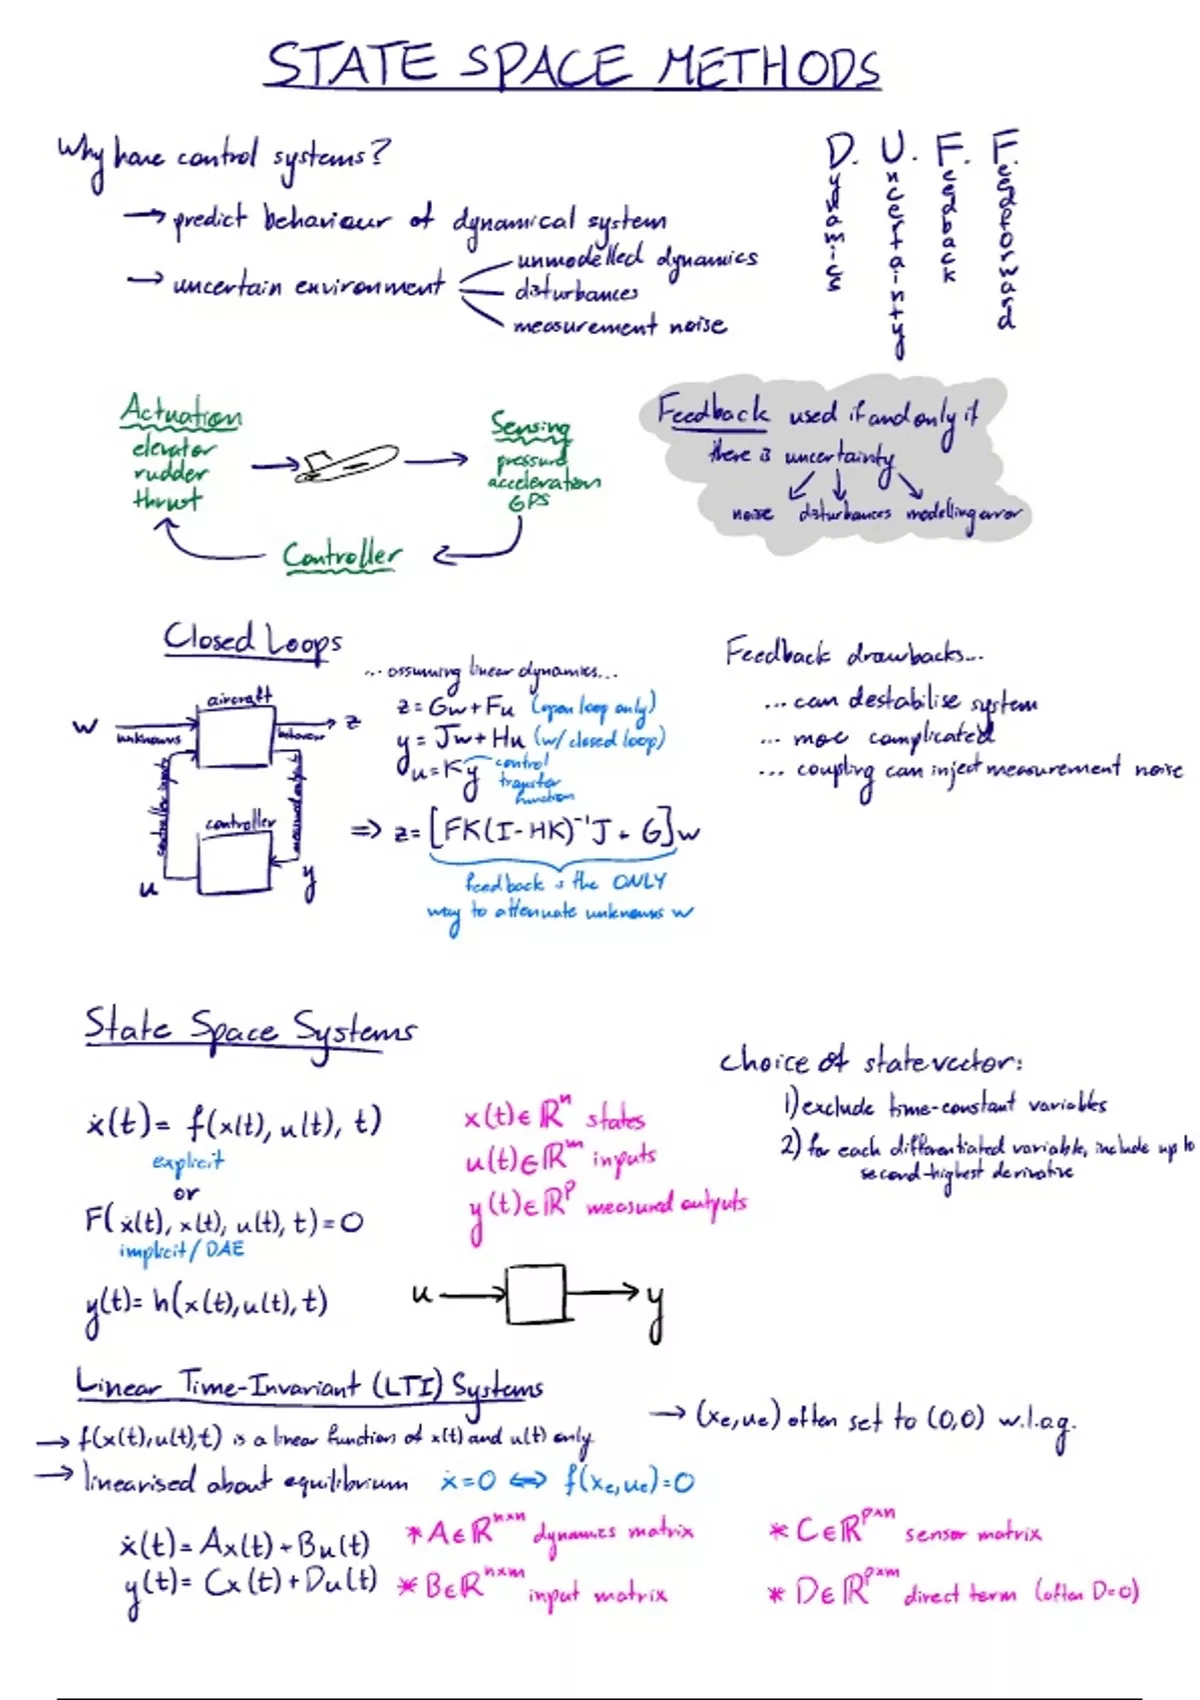 STATE SPACE METHODS
Why have control systems?
→ predict behaviour of dynamical system
→ uncertain environment
unmodelled dynamics
disturbances
measurement noise
D. U. F. F.
Dynamics
Uncertainty
Feedback
Feedforward
Actuation
elevator
rudder
thrust
Sensing
pressure
acceleration
GPS
Controller
Feedback used if and only if
there is uncertainty
noise disturbances modelling error
Closed Loops
aircraft
w
unknowns
behaviour
z
controller inputs
measured outputs
controller
u
y
... assuming linear dynamics...
z = Gw + Fu (open loop only)
y = Jw + Hu (w/ closed loop)
u = Ky
control
transfer
function
⇒ z = [FK(I-HK)⁻¹J + G]w
feedback is the ONLY
way to attenuate unknowns w
Feedback drawbacks...
... can destabilise system
... more complicated
... coupling can inject measurement noise
State Space Systems
ẋ(t) = f(x(t), u(t), t)
explicit
or
F(ẋ(t), x(t), u(t), t) = 0
implicit / DAE
y(t) = h(x(t), u(t), t)
x(t) ∈ ℝⁿ states
u(t) ∈ ℝᵐ inputs
y(t) ∈ ℝᵖ measured outputs
u
y
choice of state vector:
1) exclude time-constant variables
2) for each differentiated variable, include up to
second-highest derivative
Linear Time-Invariant (LTI) Systems
→ f(x(t), u(t), t) is a linear function of x(t) and u(t) only
→ linearised about equilibrium ẋ = 0 ⇔ f(xe, ue) = 0
→ (xe, ue) often set to (0,0) w.l.o.g.
ẋ(t) = Ax(t) + Bu(t)
y(t) = Cx(t) + Du(t)
* A ∈ ℝⁿˣⁿ dynamics matrix
* B ∈ ℝⁿˣᵐ input matrix
* C ∈ ℝᵖˣⁿ sensor matrix
* D ∈ ℝᵖˣᵐ direct term (often D=0)